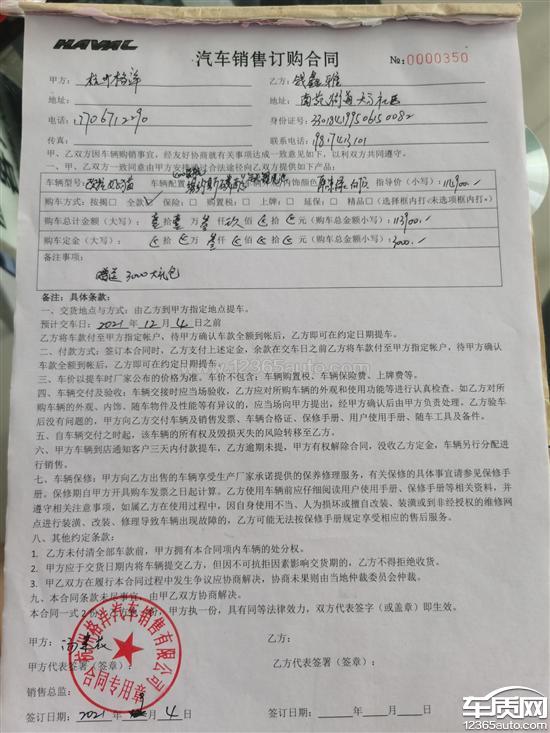 HAVAL
汽车销售订购合同
№:0000350
甲方:
乙方:
地址:
地址:
电话:
身份证号:
传真:
联系电话:
甲、乙双方因车辆购销事宜,经友好协商就有关事项达成一致意见如下,以利双方共同遵守。
车辆型号: 车辆配置 内饰颜色 指导价(小写):
购车方式:按揭□ 全款 保险:□ 购置税:□ 上牌:□ 延保:□ 精品□(选择框内打 未选项框内打×)
购车总计金额(大写): 壹拾壹万叁仟玖佰 (购车总金额小写): 113900.
购车定金(大写): 万叁仟 (购车总金额小写): 3000.
备注事项:
赠送3000大礼包
备注:具体条款:
一、交货地点与方式:由乙方到甲方指定地点提车。
预计交车日: 2021 年 12 月 4 日之前
乙方将车款付至甲方指定帐户,待甲方确认车款全额到帐后,乙方即可在约定日期提车。
二、付款方式:签订本合同时,乙方支付上述定金,余款在交车日之前乙方将车款付至甲方指定帐户,待甲方确认
车款全额到帐后,乙方即可在约定日期提车
三、车价以提车时厂家公布的价格为准。车价不包含:车辆购置税、车辆保险费、上牌费等。
四、车辆交付及验收:车辆交接时应当场验收,乙方应对所购车辆的外观和使用功能等进行认真检查。如乙方对所
购车辆的外观、内饰、随车物件及性能等有异议的,应当场向甲方提出,经甲方确认后由甲方负责处理。乙方验车
后没有问题的,甲方向乙方交付车辆及销售发票、车辆合格证、保修手册、用户使用手册、随车工具及备件。
五、自车辆交付之时起,该车辆的所有权及毁损灭失的风险转移至乙方。
六、甲方车辆到店通知客户三天内付款提车,乙方逾期未提,甲方有权解除合同,没收乙方定金,车辆另行分配进
行销售。
七、车辆保修:甲方向乙方出售的车辆享受生产厂家承诺提供的保养修理服务,有关保修的具体事宜请参见保修手
册。保修期自甲方开具购车发票之日起计算。乙方使用车辆前应仔细阅读用户使用手册、保修手册等相关资料,并
遵守相关注意事项,如属乙方在使用过程中,因自身使用不当、人为损坏或擅自改装、装潢或到非经授权的维修网
点进行装潢、改装、修理导致车辆出现故障的,乙方可能无法按保修手册规定享受相应的售后服务。
八、其他约定条款:
1. 乙方未付清全部车款前,甲方拥有本合同项内车辆的处分权。
2. 甲方应于交货日期内将车辆提交乙方,但因不可抗拒因素影响交货期的,乙方不得拒绝收货。
3. 甲乙双方在履行本合同过程中发生争议应协商解决,协商未果则由当地仲裁委员会仲裁。
九、本合同条款未尽事宜,由甲乙双方协商解决。
本合同一式2份,乙方执一份,甲方执一份,具有同等法律效力,双方代表签字(或盖章)即生效。
甲方:
乙方:
甲方代表签署(签章):
乙方代表签署(签章):
销售总监:
签订日期: 2021 年 月 4 日
签订日期: 年 月 日
汽车销售有限公司
合同专用章
www.12365auto.com
车质网
12365auto.com